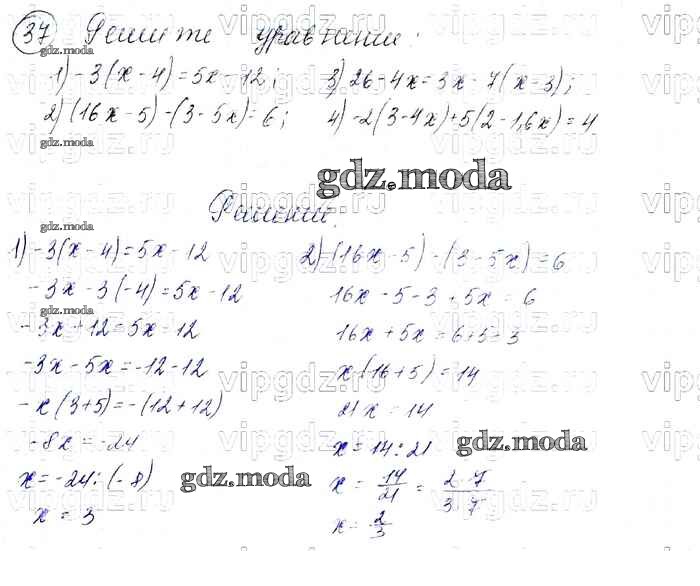 37 Решите уравнения:
1) -3(x-4)=5x-12; 3) 26-4x=3x-7(x-3);
2) (16x-5)-(3-5x)=6; 4) -2(3-4x)+5(2-1,6x)=4
gdz.moda
Решение.
1) -3(x-4)=5x-12
-3x-3(-4)=5x-12
-3x+12=5x-12
-3x-5x=-12-12
-x(3+5)=-(12+12)
-8x=-24
x=-24:(-8)
x=3
2) (16x-5)-(3-5x)=6
16x-5-3+5x=6
16x+5x=6+5+3
x(16+5)=14
21x=14
x=14:21
x=14/21=2·7/3·7
x=2/3
gdz.moda
gdz.moda
gdz.moda
gdz.moda
gdz.moda
gdz.moda
gdz.moda
vipgdz.ru